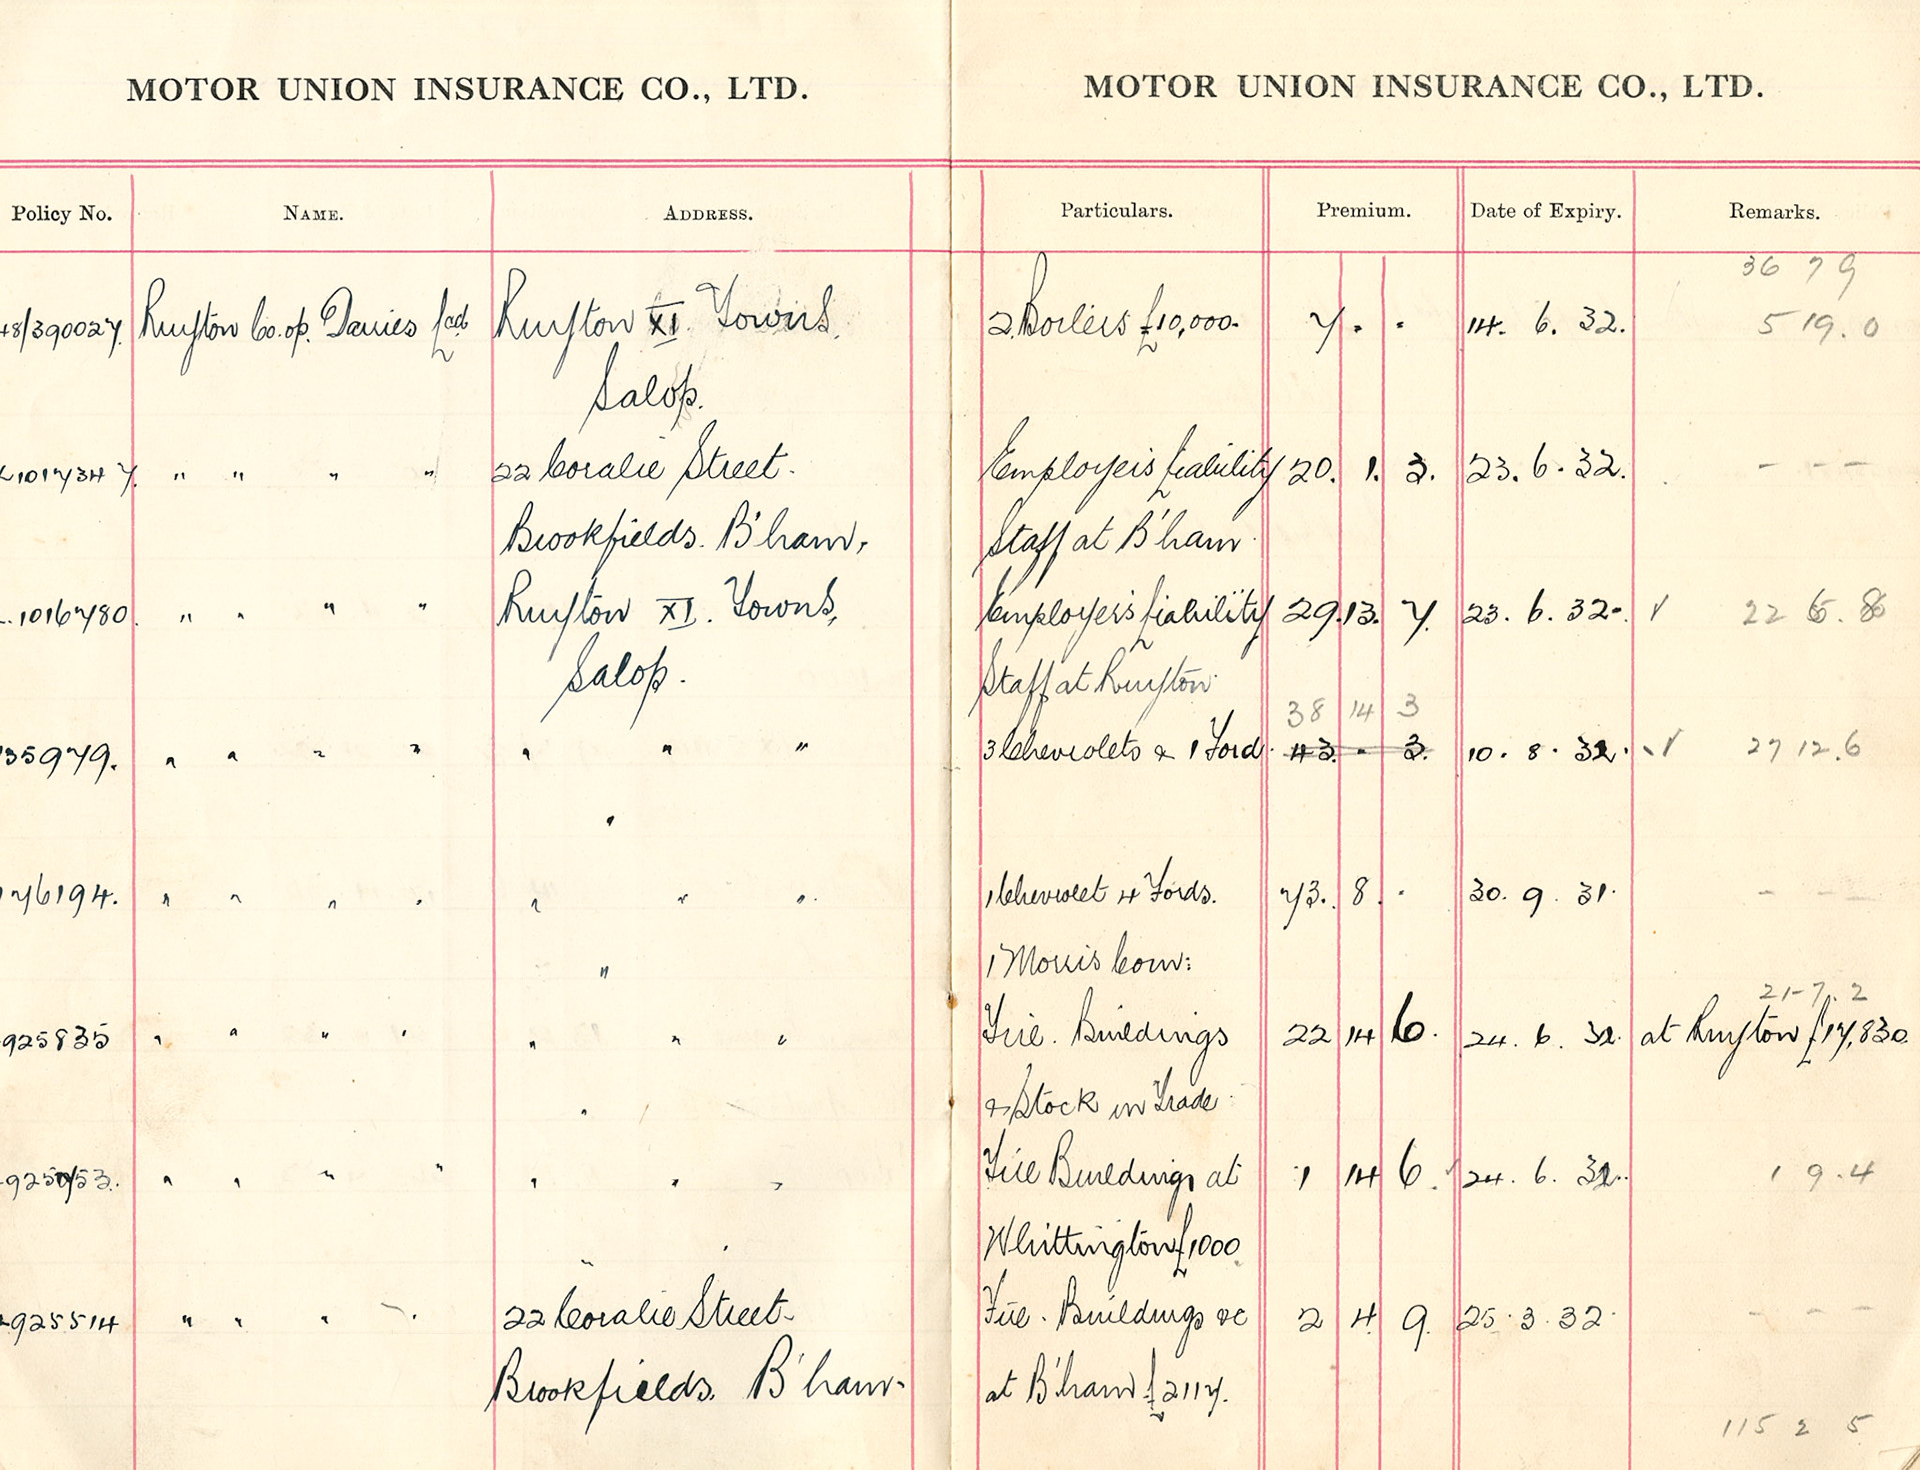 MOTOR UNION INSURANCE CO., LTD.
MOTOR UNION INSURANCE CO., LTD.
Policy No. NAME. ADDRESS. Particulars. Premium. Date of Expiry. Remarks.
36 7 9
48/390027. Ruyton Co.op. Dairies Ltd Ruyton XI. Towns, 2 Boilers £10,000. 7. . 14. 6. 32. 5 19. 0
Salop.
L1017347. " " " " 22 Coralie Street. Employers Liability 20. 1. 3. 23. 6. 32. - - -
Brookfields. B'ham, Staff at B'ham.
1016780. " " " " Ruyton XI. Towns, Employers Liability 29. 13. 7. 23. 6. 32. √ 22 6. 8
Salop. Staff at Ruyton.
38 14 3
135979. " " " " " " " 3 Chevrolets & 1 Ford. 43. . 3. 10. 8. 32. √ 27 12. 6
"
176194. " " " " " " " 1 Chevrolet 4 Fords. 73. 8. . 30. 9. 31. - - -
" 1 Morris Com:
21-7. 2
925835 " " " " " " " Fire. Buildings 22 14 6. 24. 6. 32. at Ruyton £17,830.
" & Stock in Trade.
" " " " " " " Fire Buildings at 1 14 6. 24. 6. 32. 1 9. 4
" " Whittington £1000.
925514 " " " " 22 Coralie Street. Fire. Buildings &c 2 4 9. 25. 3. 32. - - -
Brookfields. B'ham. at B'ham £2117.
115 2 5